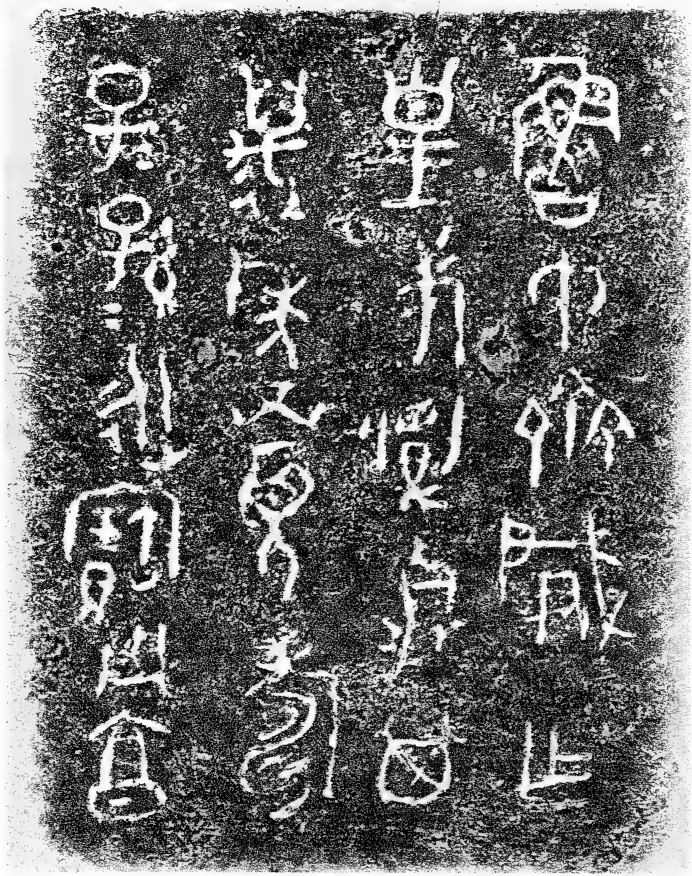 魯中齊肈乍
皇考𩱧鼎其
萬年眉壽
子子孫孫永寶用享